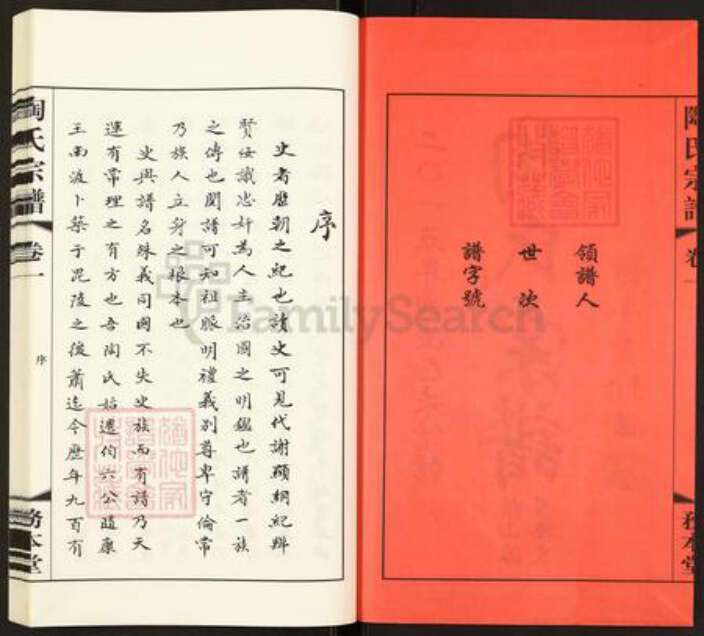 陶氏宗譜
卷一
務本堂
領譜人
世次
譜字號
序
史者歷朝之紀也讀史可見代謝顯綱紀辨
賢佞識忠奸為人主治國之明鑑也譜者一族
之傳也閱譜可知祖脈明禮義別尊卑守倫常
乃族人立身之根本也
史與譜名殊義同國不失史族而有譜乃天
運有常理之有方也吾陶氏始遷伯六公隨康
王南渡卜築于毘陵之後蕭迄今歷年九百有
陶氏宗譜
卷一
序
務本堂
FamilySearch